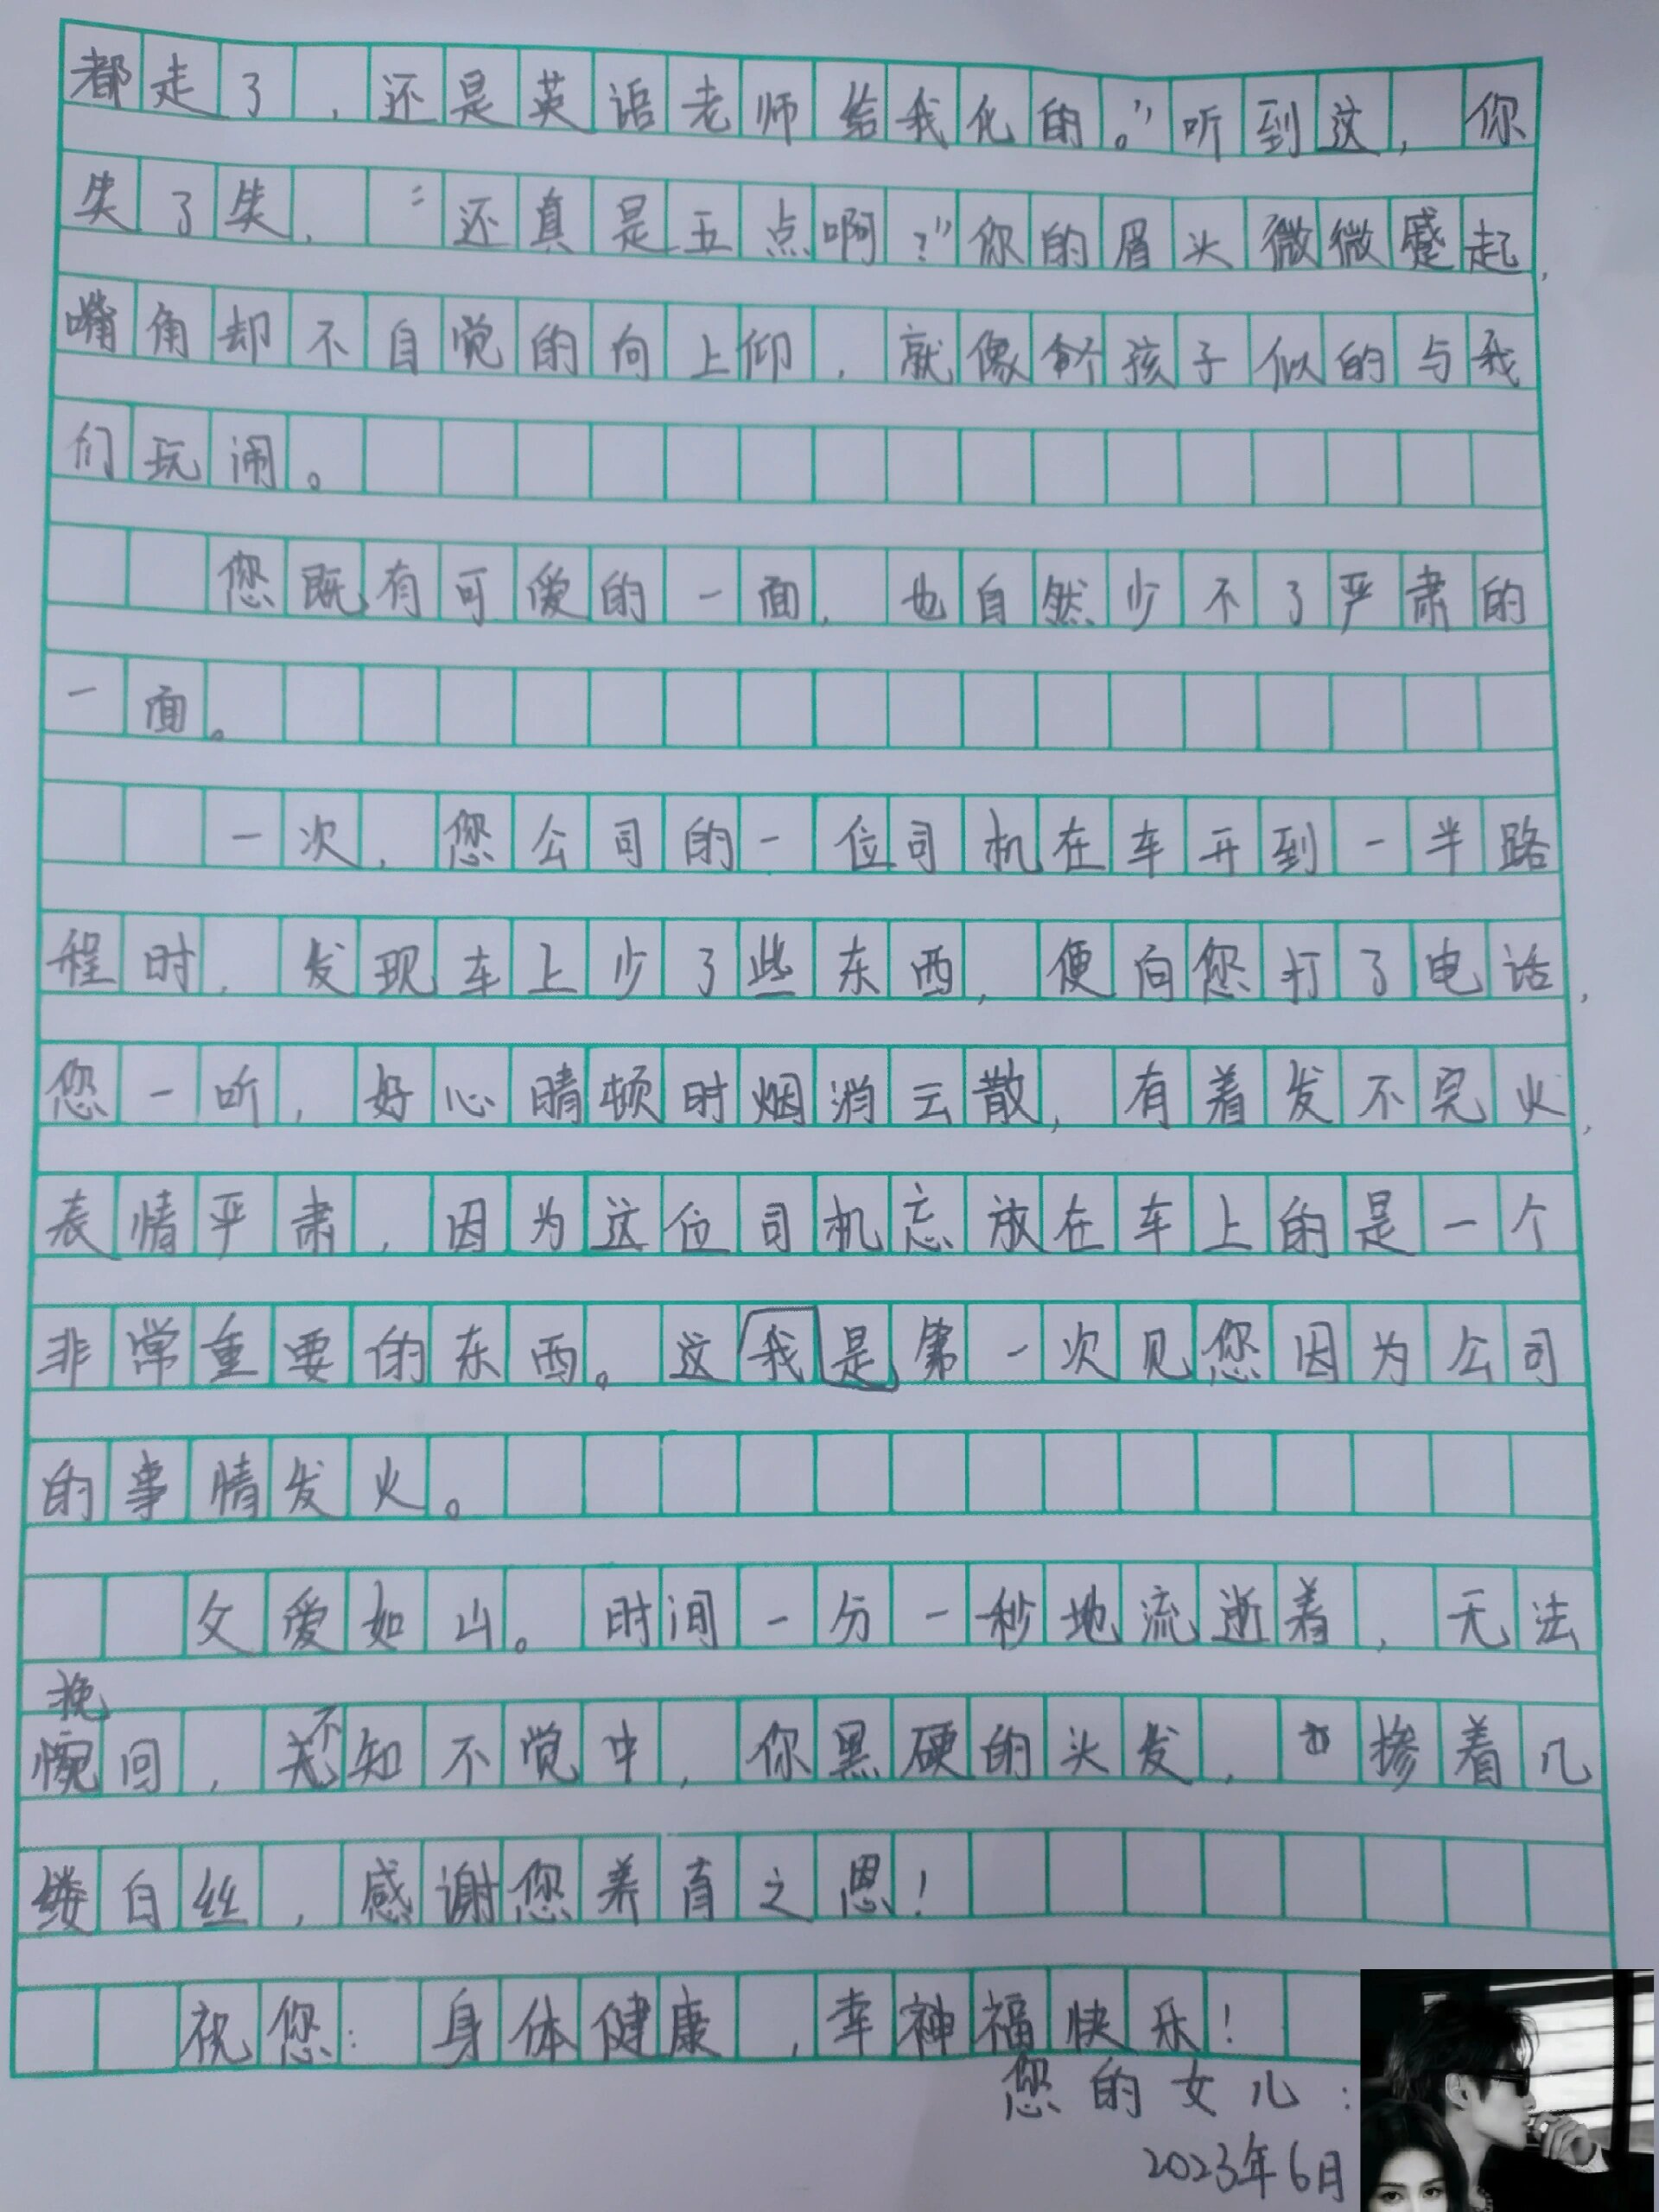 都走了，还是英语老师给我化的。”听到这，你
失了失，“还真是五点啊？”你的眉头微微蹙起，
嘴角却不自觉的向上仰，就像个孩子似的与我
们玩闹。
您既有可爱的一面，也自然少不了严肃的
一面。
一次，您公司的一位司机在车开到一半路
程时，发现车上少了些东西，便向您打了电话，
您一听，好心晴顿时烟消云散，有着发不完火，
表情严肃，因为这位司机忘放在车上的是一个
非常重要的东西。这我是第一次见您因为公司
的事情发火。
父爱如山。时间一分一秒地流逝着，无法
挽回，不知不觉中，你黑硬的头发，掺着几
缕白丝，感谢您养育之恩！
祝您：身体健康，幸神福快乐！
您的女儿：
2023年6月